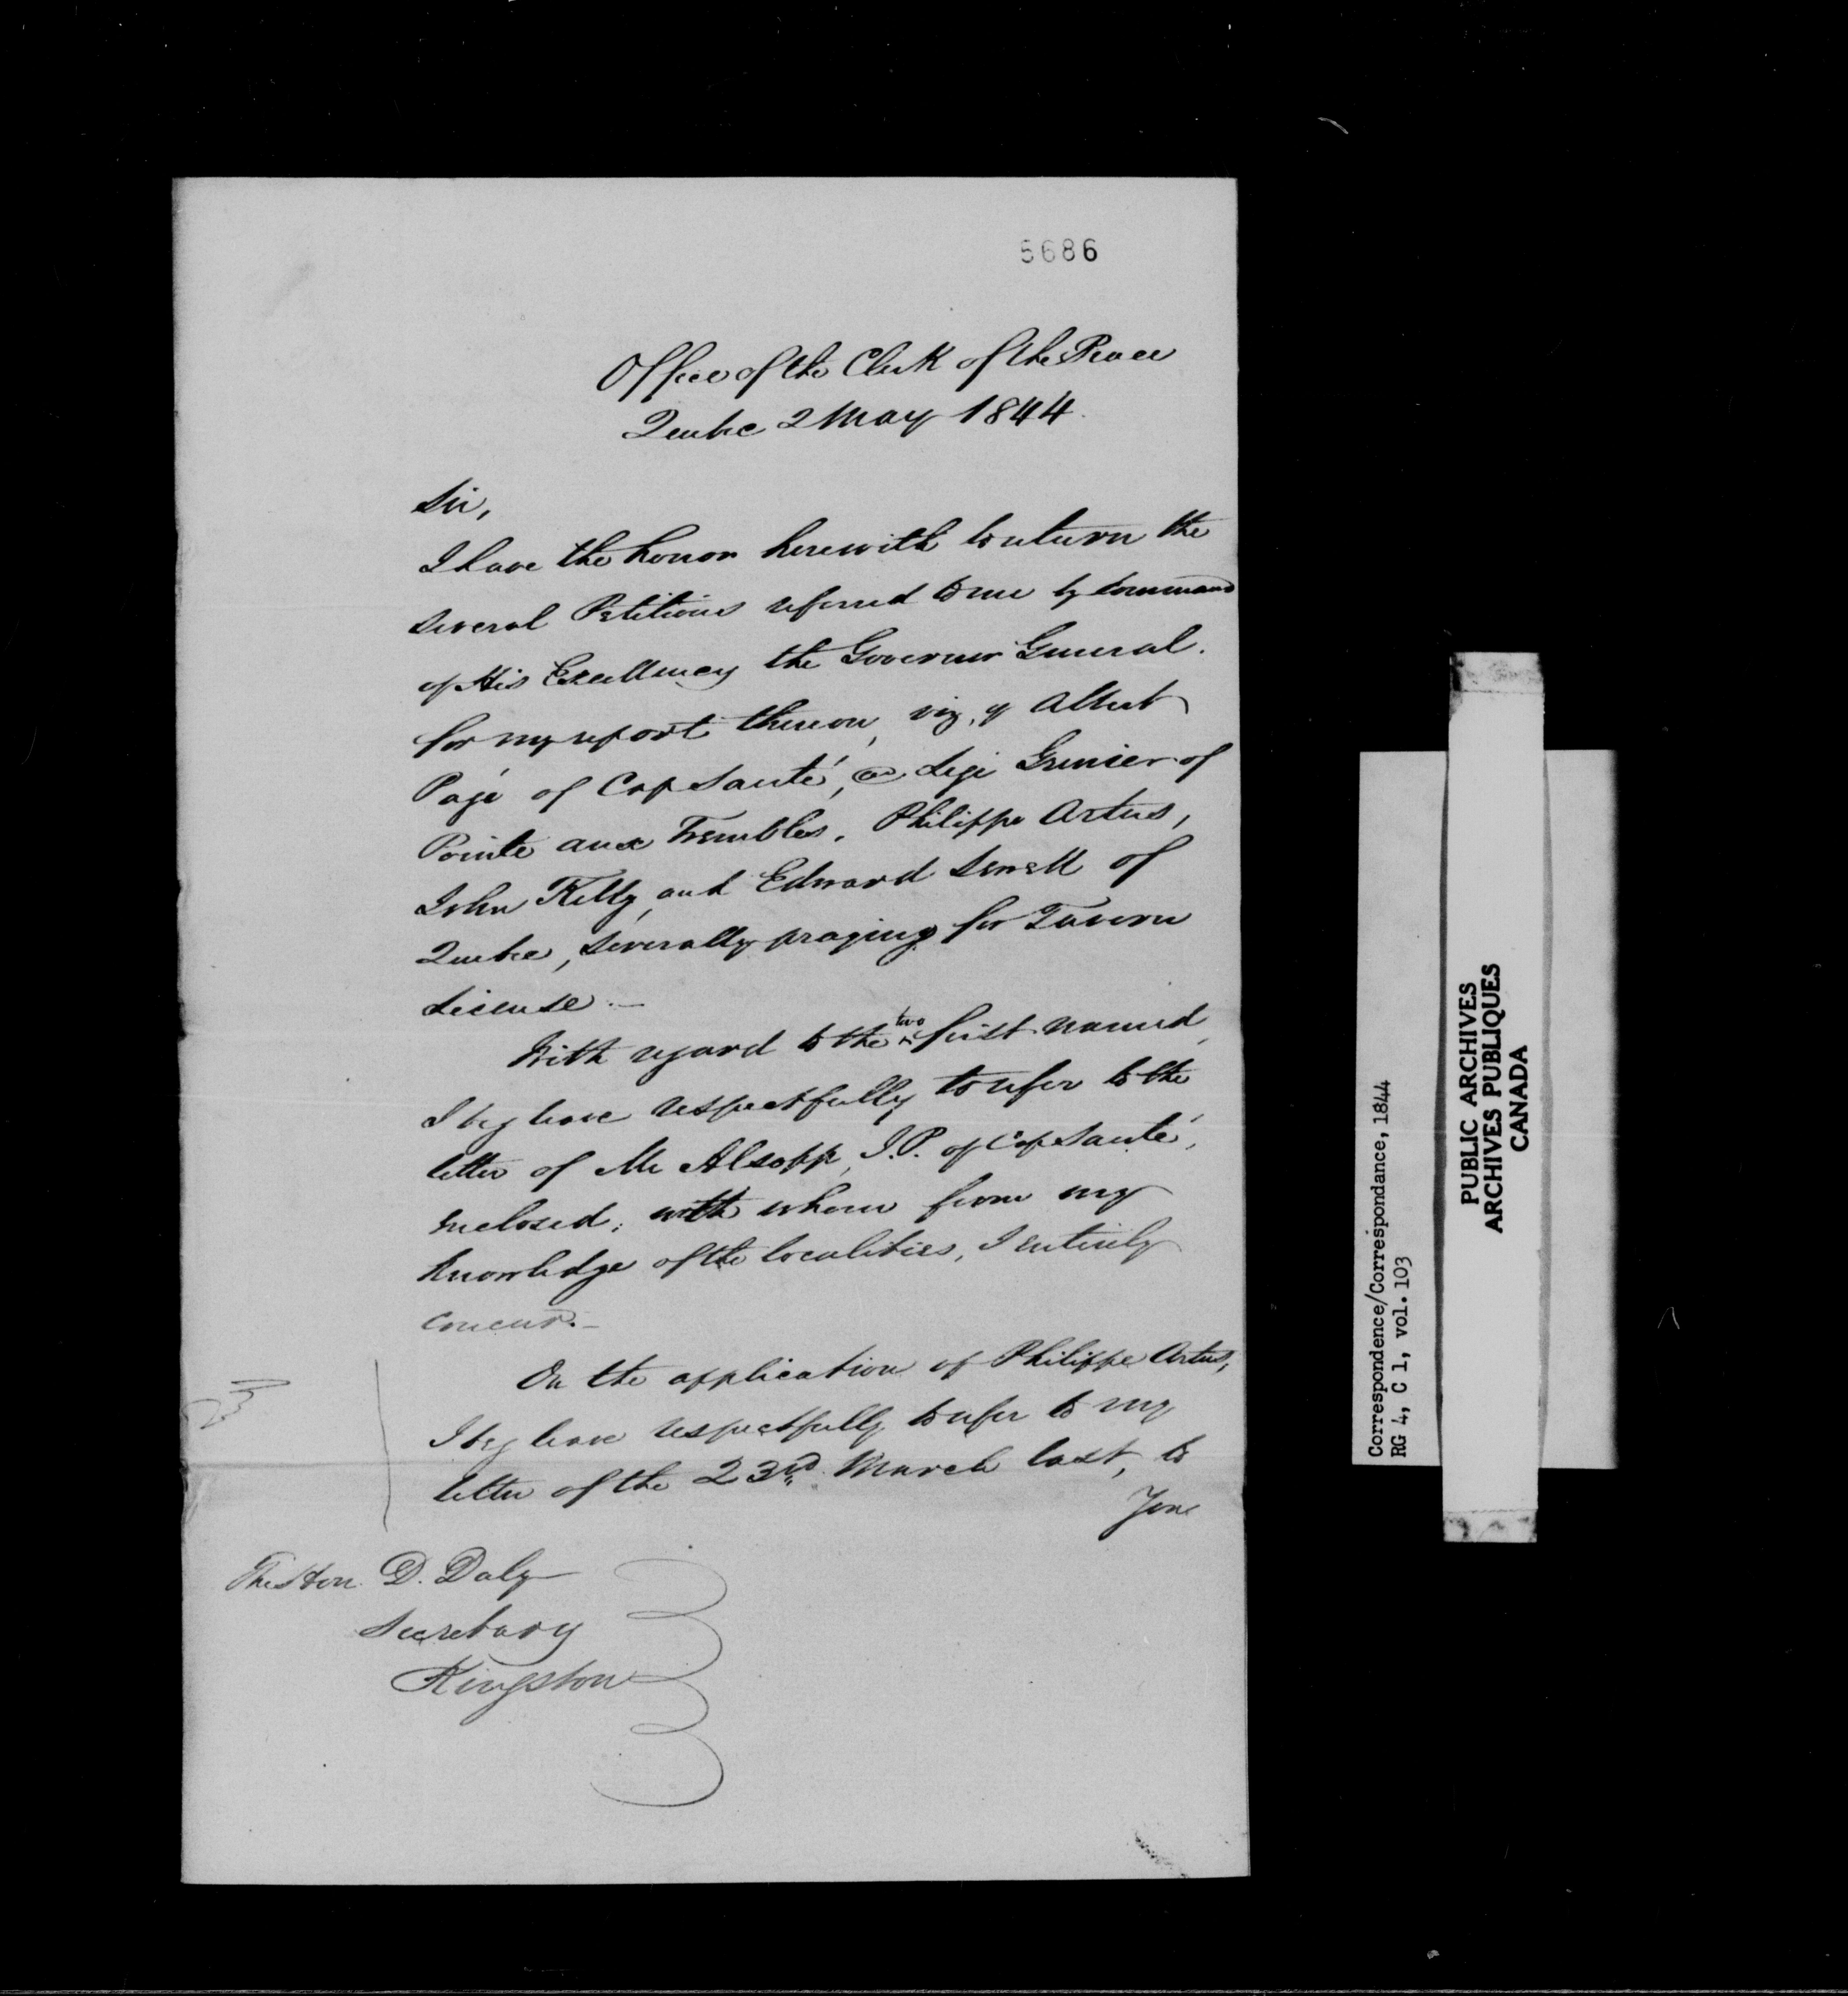 5686
Office of the Clerk of the Peace
Quebec 2 May 1844.
Sir,
I have the honor herewith to return the
several Petitions referred to me by command
of His Excellency the Governor General.
for my report thereon, viz, of Albert
Pagé of Cap Santé, Grenier of
Pointe aux Trembles, Philippe Artus,
John Kelly, and Edward Sewell of
Quebec, severally praying for Tavern
License.—
With regard to the two first named,
I beg leave respectfully to refer to the
letter of Mr Alsopp, J.P. of Cap Santé,
enclosed; with whom from my
knowledge of the localities, I entirely
concur.—
On the application of Philippe Artus,
I beg leave respectfully to refer to my
letter of the 23rd. March last, to
You
The Hon. D. Daly
Secretary
Kingston
Correspondence/Correspondance, 1844
RG 4, C 1, vol. 103
PUBLIC ARCHIVES
ARCHIVES PUBLIQUES
CANADA